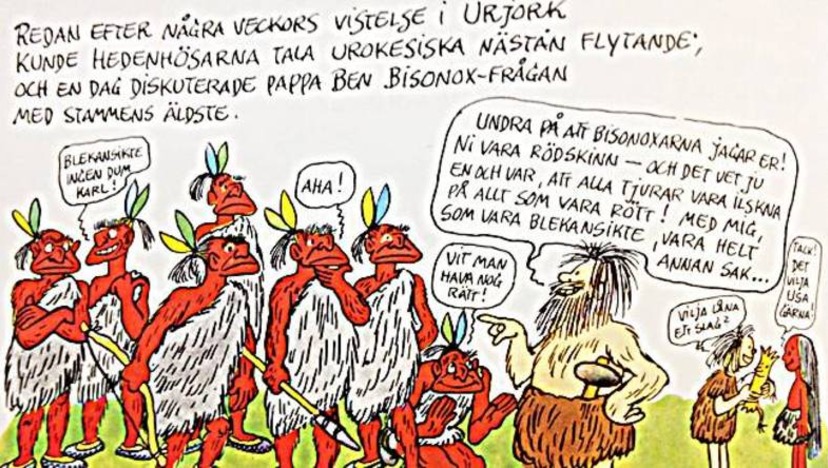 REDAN EFTER NÅGRA VECKORS VISTELSE I URJORK
KUNDE HEDENHÖSARNA TALA UROKESISKA NÄSTAN FLYTANDE;
OCH EN DAG DISKUTERADE PAPPA BEN BISONOX-FRÅGAN
MED STAMMENS ÄLDSTE.
BLEKANSIKTE
INGEN DUM
KARL!
AHA!
VIT MAN
HAVA NOG
RÄTT!
UNDRA PÅ ATT BISONOXARNA JAGAR ER!
NI VARA RÖDSKINN – OCH DET VET JU
EN OCH VAR, ATT ALLA TJURAR VARA ILSKNA
PÅ ALLT SOM VARA RÖTT! MED MIG,
SOM VARA BLEKANSIKTE, VARA HELT
ANNAN SAK...
VILJA LÅNA
ETT SLAG?
TACK!
DET
VILJA
USA
GÄRNA!